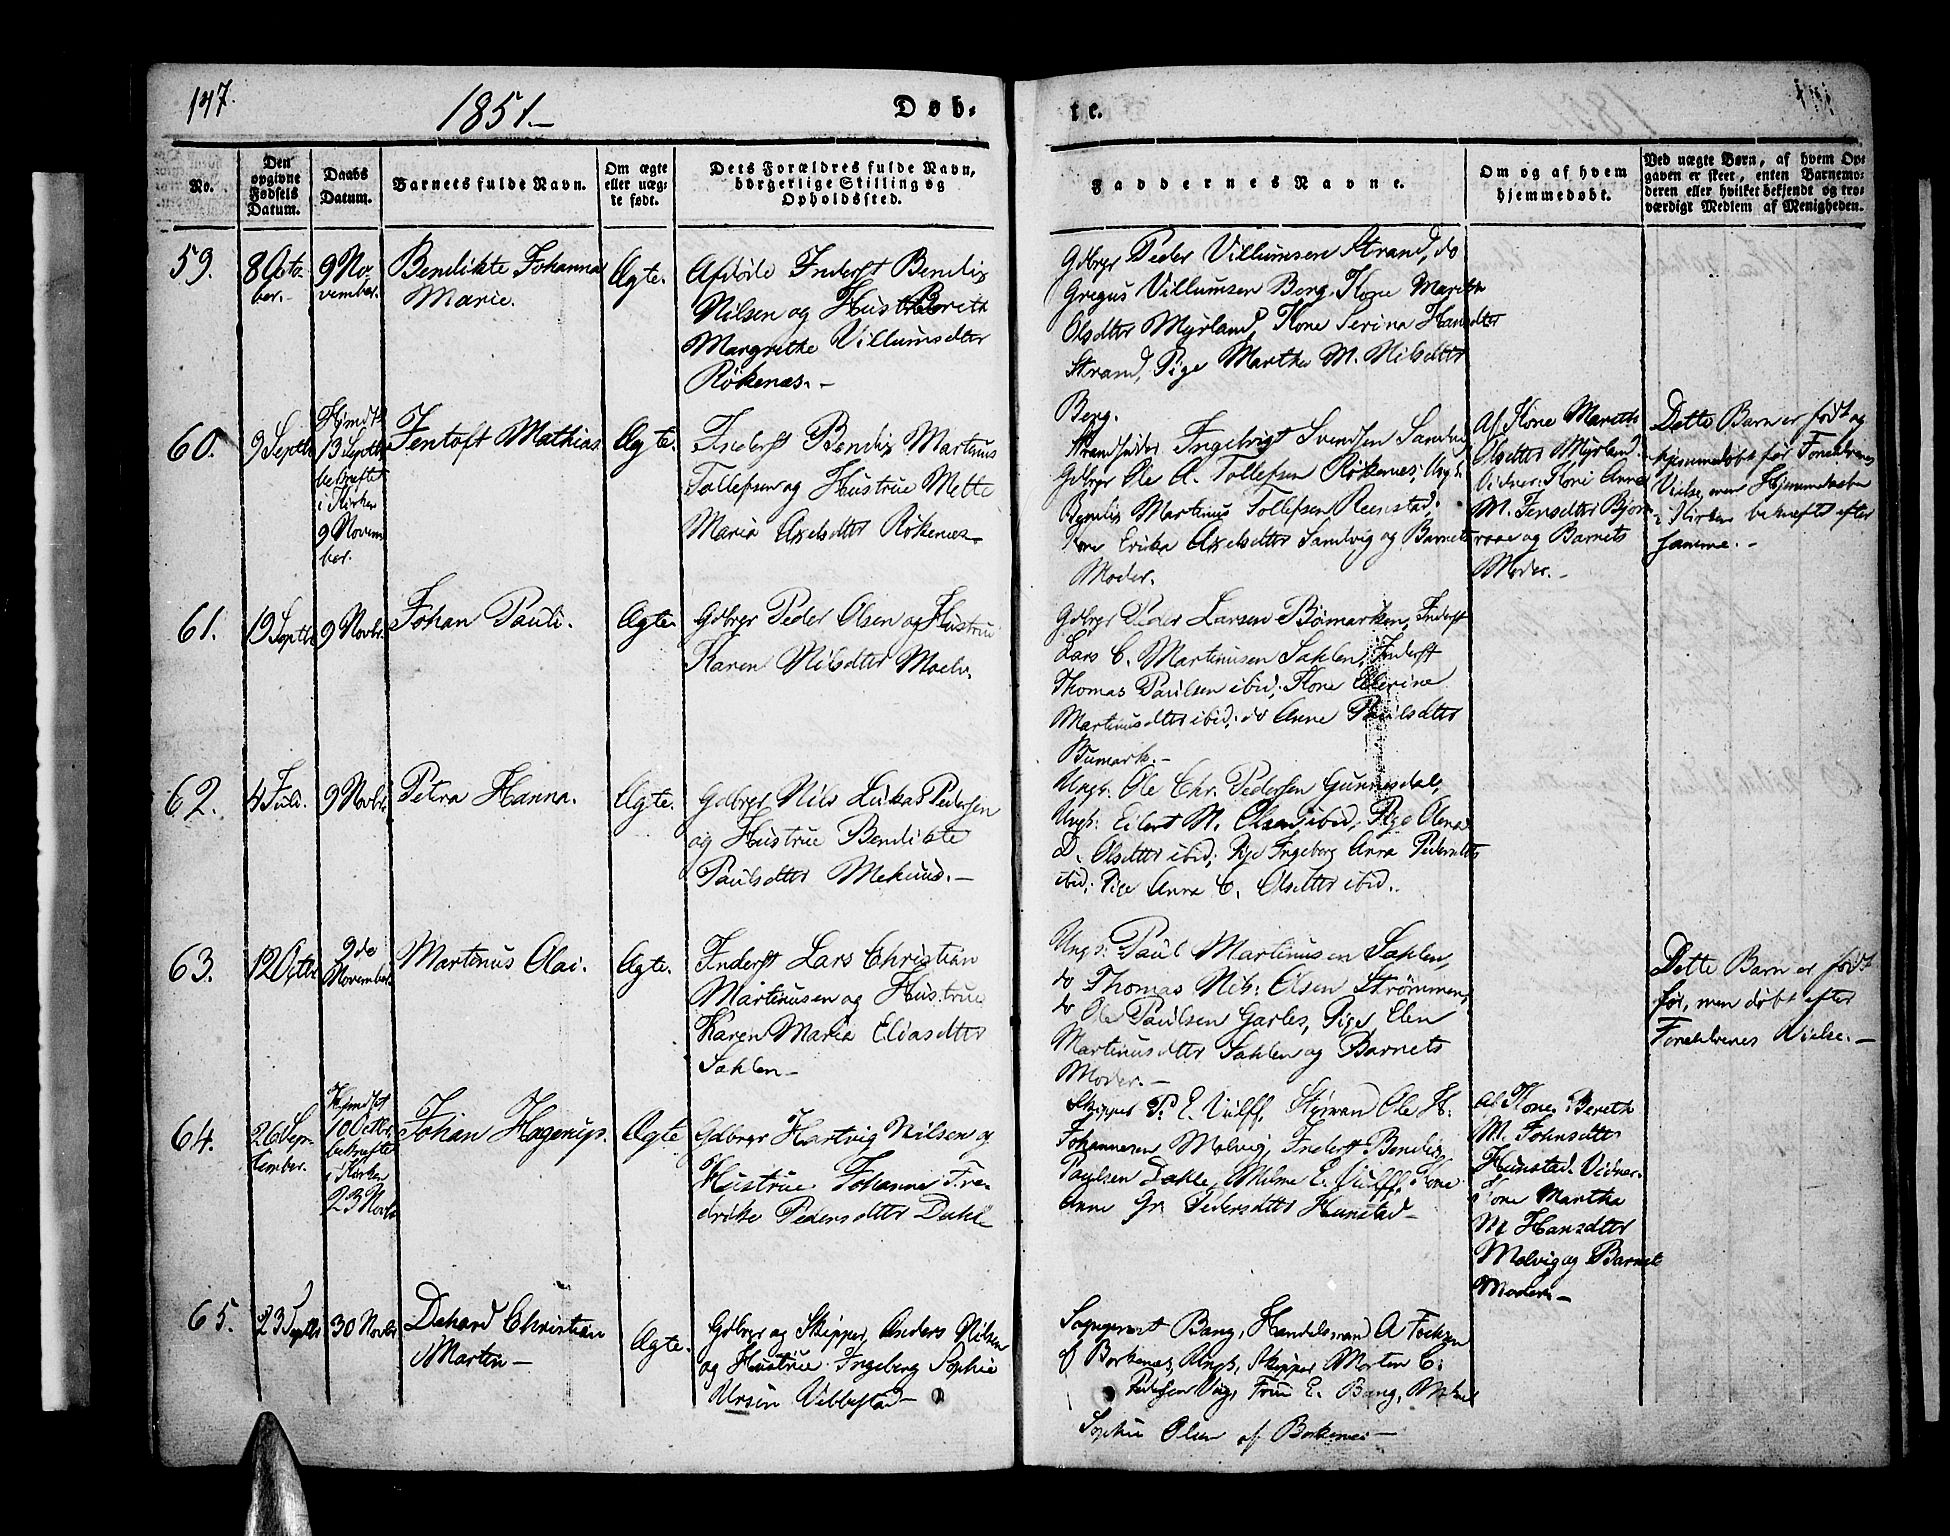 147.
1851.-
Døb-
te.
No.
Den opgivne Fødsels Datum.
Daabs Datum.
Barnets fulde Navn.
Om ægte eller uæg-
te født.
Dets Forældres fulde Navn,
borgerlige Stilling og
Opholdssted.
Faddernes Navne.
Om og af hvem
hjemmedøbt.
Ved uægte Børn, af hvem Op-
gaven er skeet, enten Barnemo-
deren eller hvilket bekjendt og tro-
værdigt Medlem af Menigheden.
59.
8 Octo
ber.-
9 No-
vember.
Bendikte Johanna
Marie.
Ægte.
Afdøde Inderst Bendix
Nilsen og Hustru Bereth
Margrethe Villumsdtter
Røkenæs.-
Gdbrgr Peder Villumsen Strand, do
Gregus Villumsen Berg, Kone Mareth
Olsdtter Myrland, Kone Serina Hansdtter
Strand, Pige Martha M. Nilsdtter
Berg.
60.
9 Septbr
Hjmdbt
13 Septbr
bekræftet
i Kirken
9 Novem
ber.
Jentoft Mathias
Ægte.
Inderst Bendix Martinus
Tollefsen og Hustrue Mette
Maria Axelsdtter Røkenæs-
Strandsidder Ingebrigt Svendsen Sandvi
Gdbrgr Ole A. Tollefsen Røkenes; Ungk.
Bendix Martinus Tollefsen Reenstad;
Kone Erika Axelsdtter Sandvig og Barnets
Moder.
Af Kone Mareth
Olsdtter Myrland.
Vidner: Kone Anne
M. Jensdtter Bjørn
raae og Barnets
Moder.-
Dette Barn er født og
hjemmedøbt før Forældrenes
Vielse, men Hjemmedaaben
i Kirken bekræftet efter
samme.-
61.
19 Septbr
9 Novbr.
Johan Pauli.
Ægte.
Gdbrgr Peder Olsen og Hustrue
Karen Nilsdtter Maelv.
Gdbrgr Peder Larsen Bømarken, Inderst
Lars C. Martinusen Sahlen, Inderst
Thomas Paulsen ibid; Kone Ellerine
Martinusdtter ibid; do Anne Paulsdtter
Bumark.-
62.
4 Juli.
9 Novbr.
Petra Hanna.
Ægte.
Gdbrgr Nils Lukas Pedersen
og Hustrue Bendikte
Paulsdtter Mehuus.-
Ungk. Ole Chr. Pedersen Gunnesdal,
Ungk: Eilert N. Olsen ibid, Pige Olena
D. Olsdtter ibid; Pige Ingeborg Anna Pedersdtter
ibid; Pige Anna C. Olsdtter ibid.
63.
12 Octbr
9de
November
Martinus Olai.
Ægte.
Inderst Lars Christian
Martinusen og Hustrue
Karen Maria Eliasdtter
Sahlen-
Ungk: Paul Martinusen Sahlen,
do Thomas Nils: Olsen Strømmen,
do Ole Paulsen Garles, Pige Elen
Martinusdtter Sahlen og Barnets
Moder.-
Dette Barn er født
før, men døbt efter
Forældrenes Vielse.-
64.
26 Sep-
tember.
Hjmdbt
10 Octbr.
bekræftet
i Kirken
23 Novbr
Johan Hagerup.
Ægte
Gdbrgr Hartvig Nilsen og
Hustrue Johanne Fre-
drike Pedersdtter Dahle
Skipper P. E. Vulff, Styrmand Ole H.
Johannesen Molvig, Inderst Bendix
Paulsen Dahle, Mdme E. Vulff, Kone
Anne Gr. Pedersdtter Hunstad-
Af Kone Bereth
M. Johnsdtter
Hunstad. Vidner.
Kone Martha
M. Hansdtter
Molvig og Barnets
Moder.-
65.
23 Septbr
30 Novbr
Dehard Christian
Martin-
Ægte.
Gdbrgr og Skipper Anders Nilsen
og Hustrue Ingeborg Sophie
Ursin Vebbestad-
Sognepræst Bang, Handelsmand A Fochsen
af Borkenæs, Ungk. Skipper Morten C.
Pedersen Vig, Frue E. Bang,
Sophie Olsen af Borkenes-